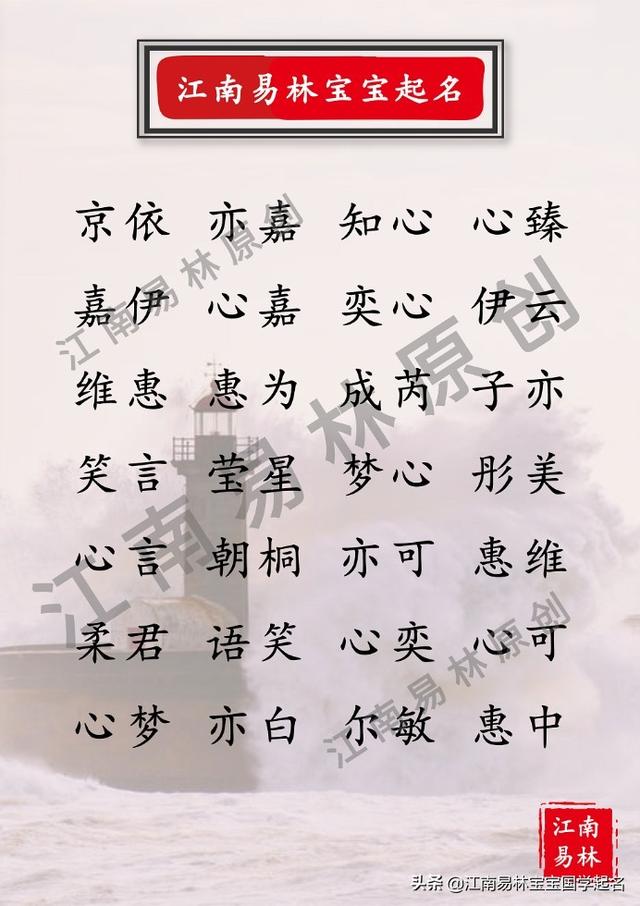 江南易林宝宝起名
京依 亦嘉 知心 心臻
嘉伊 心嘉 奕心 伊云
维惠 惠为 成芮 子亦
笑言 莹星 梦心 彤美
心言 朝桐 亦可 惠维
柔君 语笑 心奕 心可
心梦 亦白 尔敏 惠中
江南易林原创
江南易林原创
江南易林原创
江南
易林
头条 @江南易林宝宝国学起名